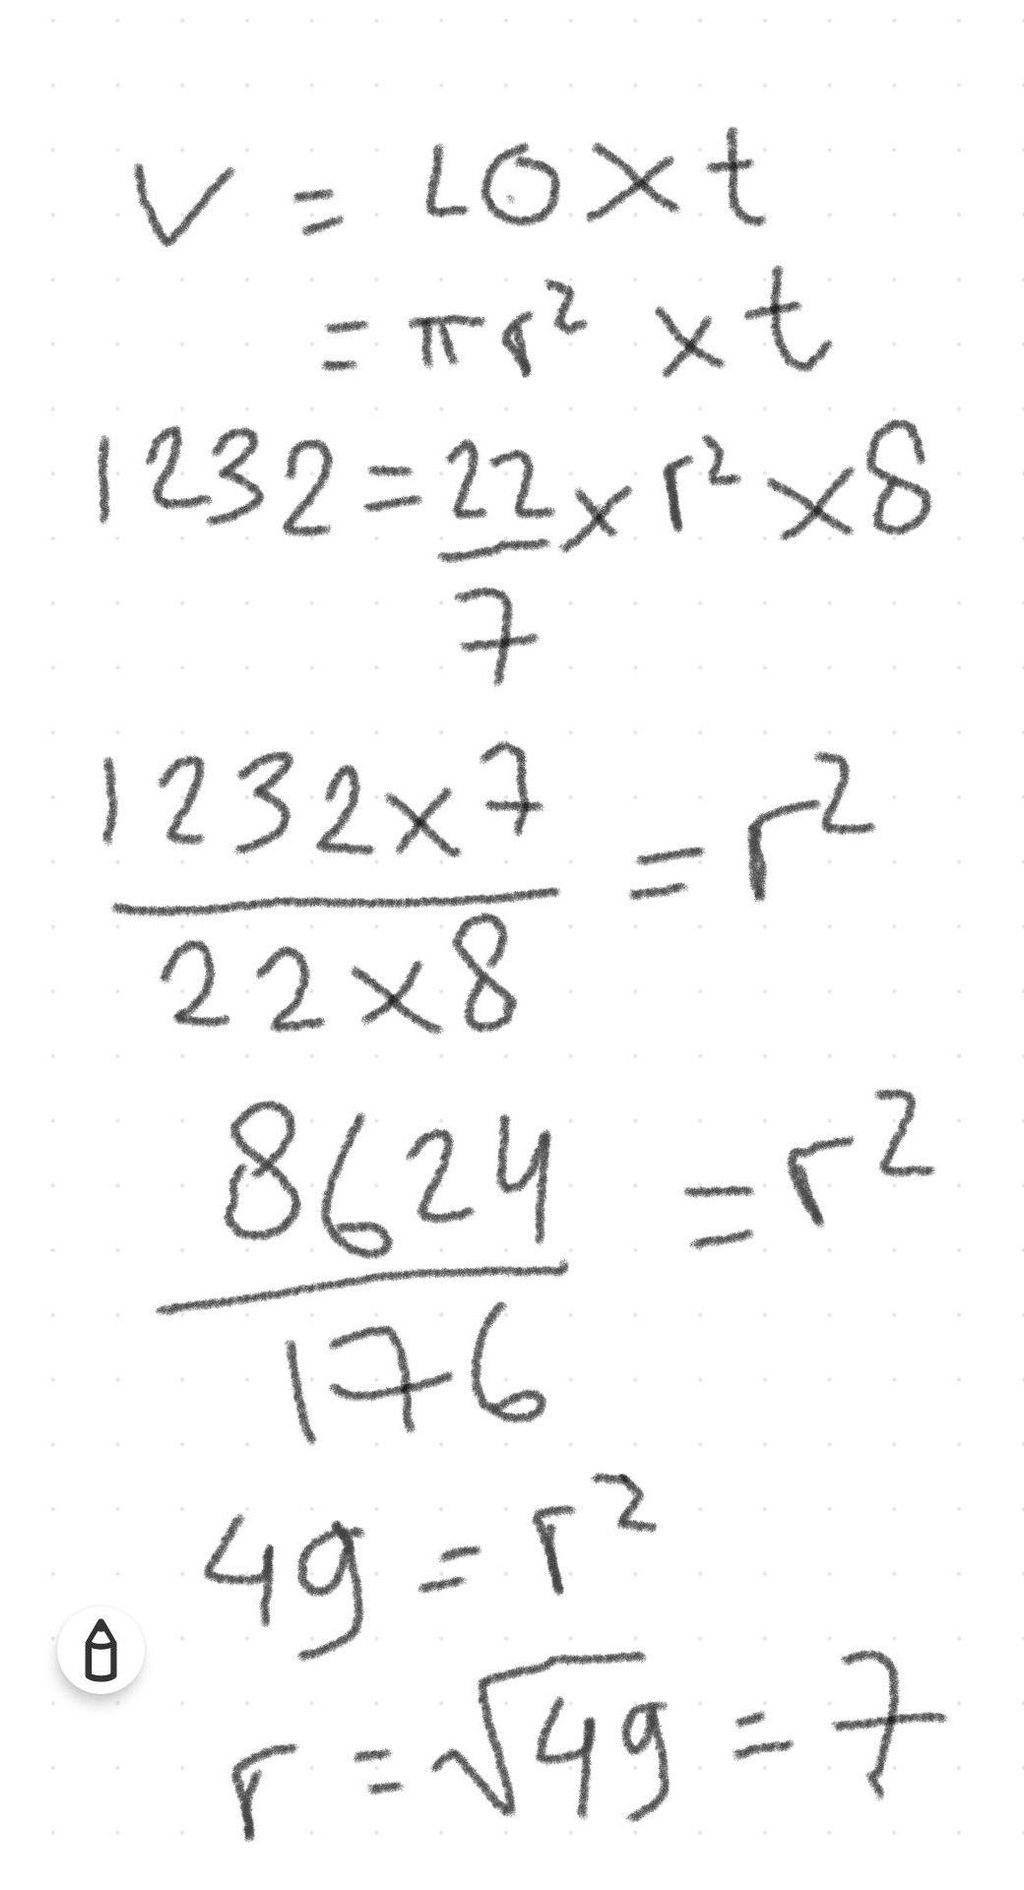 V = LO × t
= πr² × t
1232 = 22/7 × r² × 8
1232×7/22×8 = r²
8624/176 = r²
49 = r²
r = √49 = 7